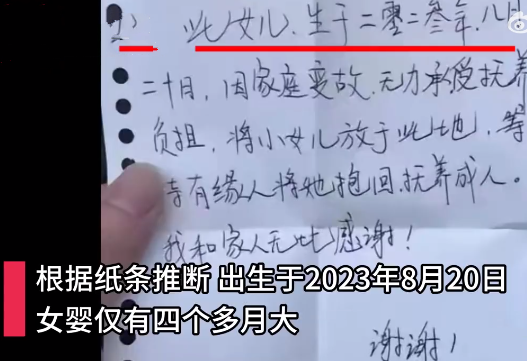 此女儿、生于二零二叁年、八月
二十日，因家庭变故、无力承受抚养
负担，将小女儿放于此地，等
待有缘人将她抱回、抚养成人。
我和家人无比感谢！
谢谢！
根据纸条推断 出生于2023年8月20日
女婴仅有四个多月大